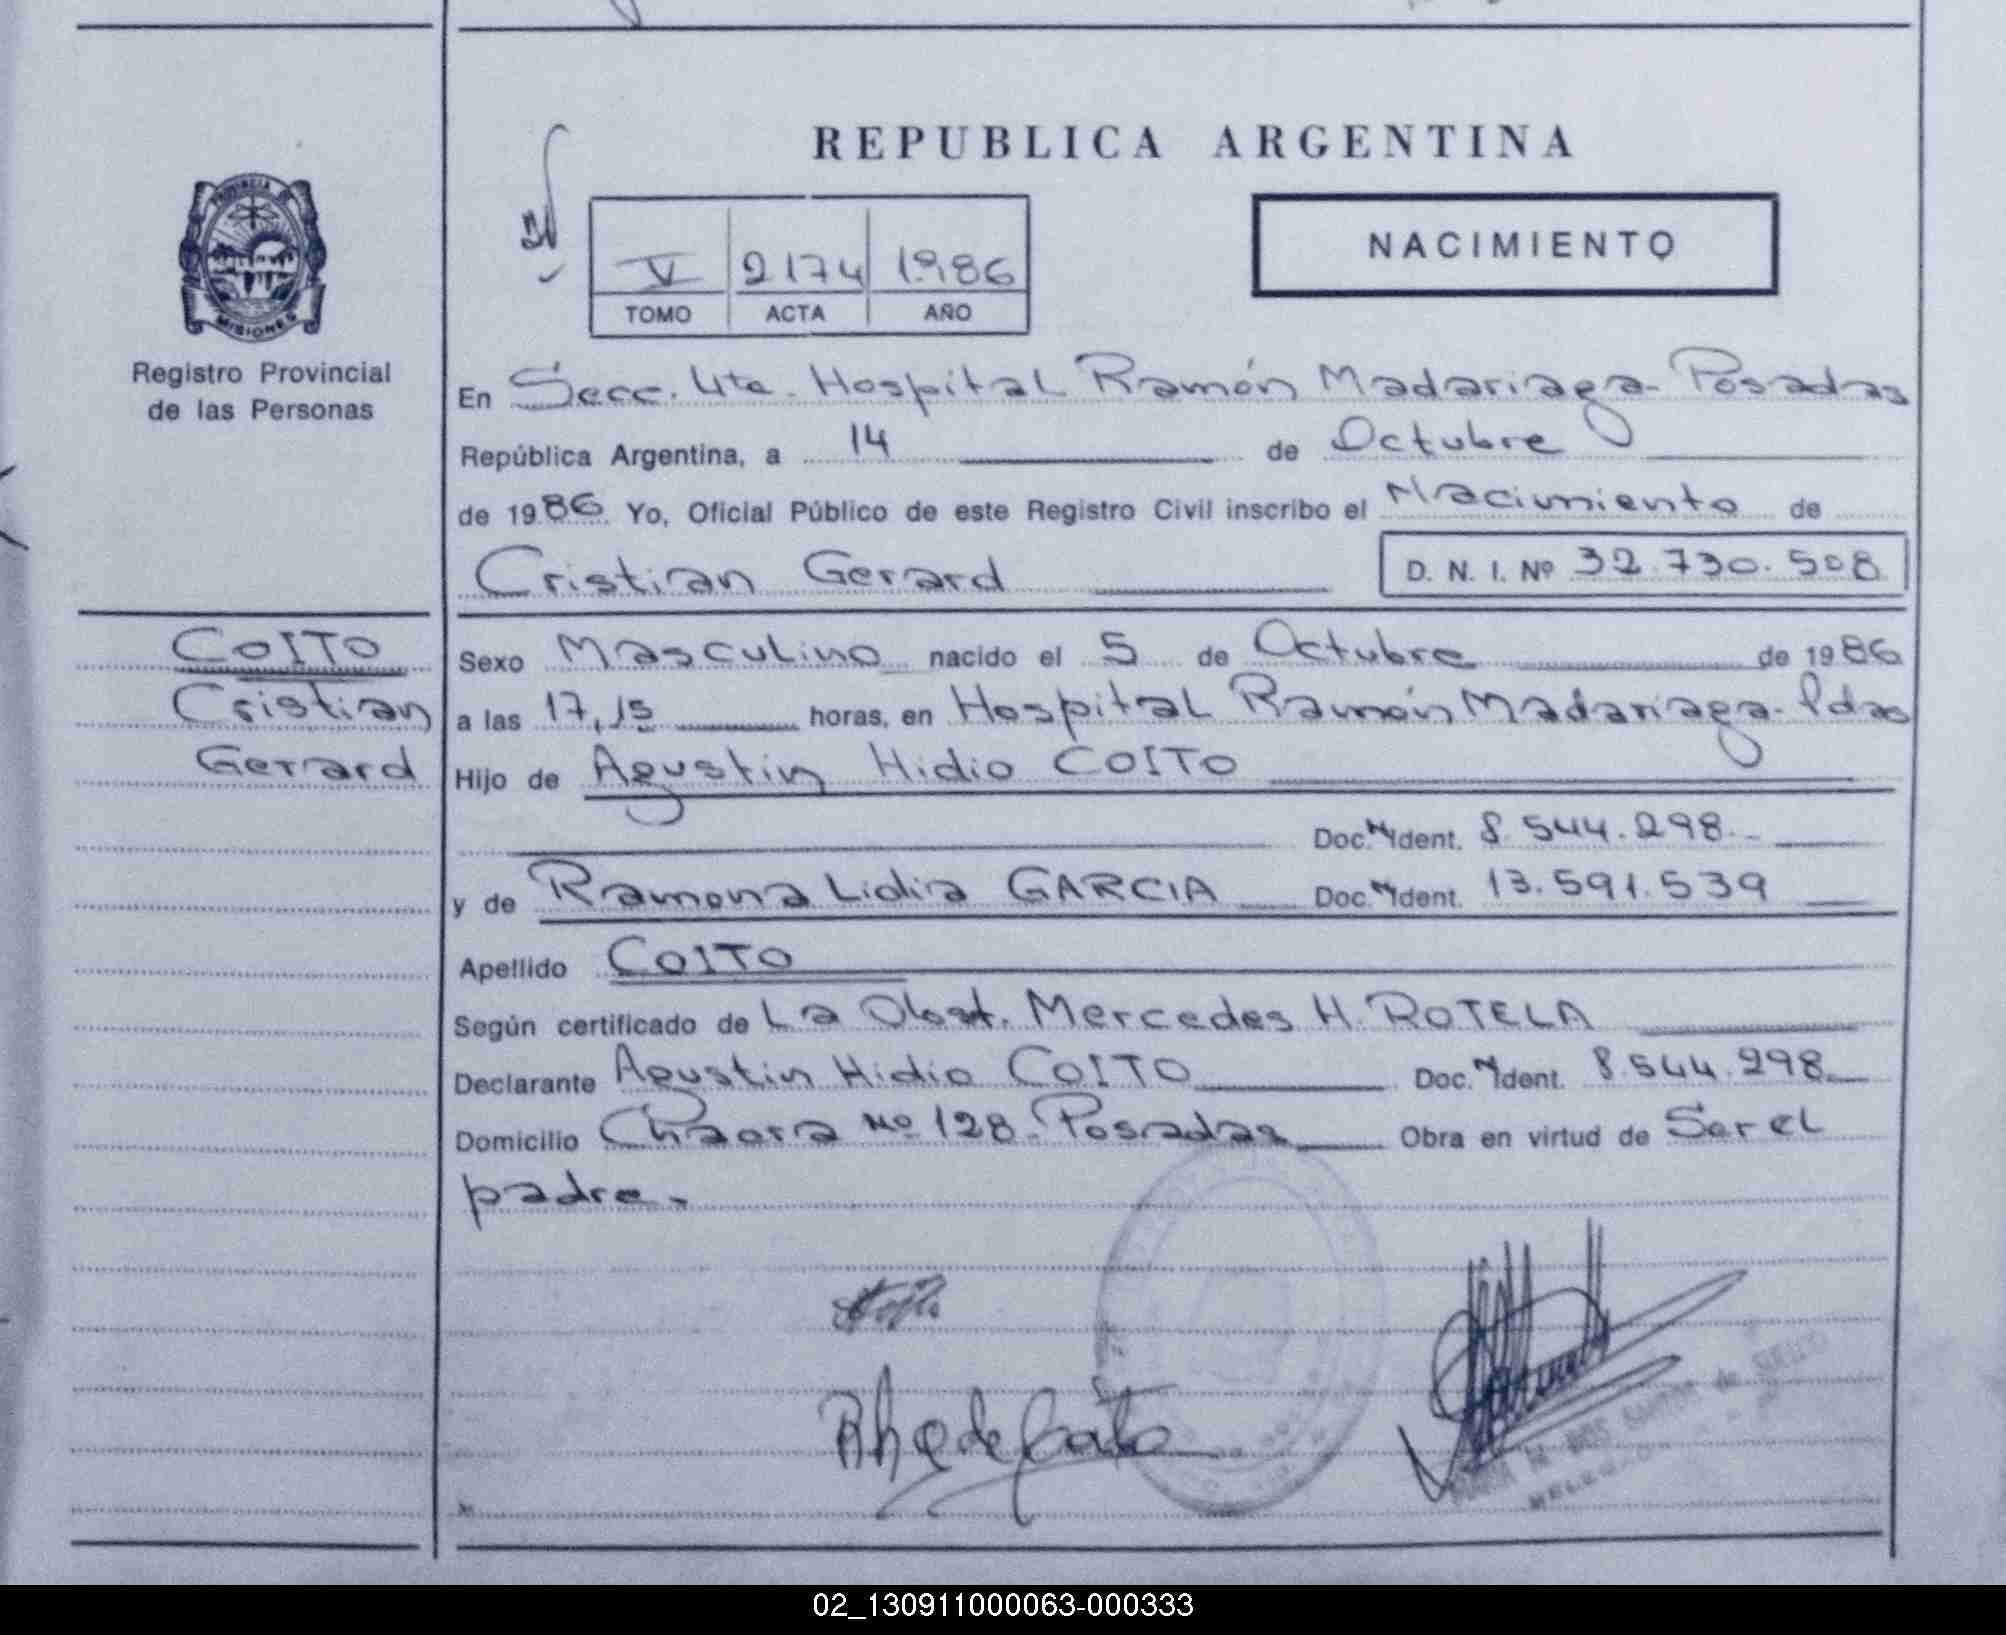 REPUBLICA ARGENTINA
PROVINCIA DE
MISIONES
Registro Provincial
de las Personas
NACIMIENTO
V 2174 1986
TOMO ACTA AÑO
En Secc. 4ta. Hospital Ramón Madariaga - Posadas
República Argentina, a 14 de Octubre
de 1986 Yo, Oficial Público de este Registro Civil inscribo el Nacimiento de
Cristian Gerard D. N. I. Nº 32.730.508
COITO
Cristian
Gerard
Sexo Masculino nacido el 5 de Octubre de 1986
a las 17,15 horas, en Hospital Ramón Madariaga - Pdas
Hijo de Agustin Hidio COITO
Doc. Ident. 8.544.298.-
y de Ramona Lidia GARCIA Doc. Ident. 13.591.539
Apellido COITO
Según certificado de La Obst. Mercedes H. ROTELA
Declarante Agustin Hidio COITO Doc. Ident. 8.544.298.
Domicilio Chacra Nº 128 - Posadas Obra en virtud de Ser el
padre.-
02_130911000063-000333